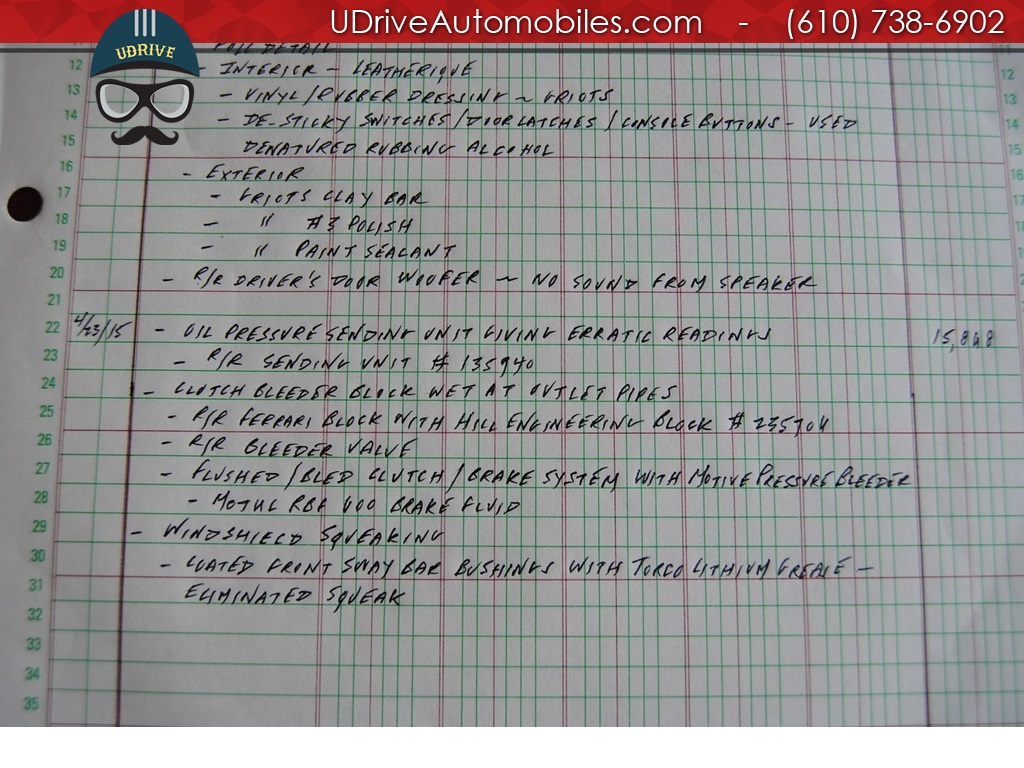 UDriveAutomobiles.com - (610) 738-6902
UDRIVE
- FULL DETAIL
12 - INTERIOR - LEATHERIQUE 12
13 - VINYL/RUBBER DRESSING ~ GRIOTS 13
14 - DE-STICKY SWITCHES/DOOR LATCHES/CONSOLE BUTTONS - USED 14
15 DENATURED RUBBING ALCOHOL 15
16 - EXTERIOR
17 - GRIOTS CLAY BAR
18 - " #3 POLISH
19 - " PAINT SEALANT
20 - R/R DRIVER'S DOOR WOOFER ~ NO SOUND FROM SPEAKER
21
22 4/23/15 - OIL PRESSURE SENDING UNIT GIVING ERRATIC READINGS 15,848
23 - R/R SENDING UNIT # 135940
24 - CLUTCH BLEEDER BLOCK WET AT OUTLET PIPES
25 - R/R FERRARI BLOCK WITH HILL ENGINEERING BLOCK #
26 - R/R BLEEDER VALVE
27 - FLUSHED/BLED CLUTCH/BRAKE SYSTEM WITH MOTIVE PRESSURE BLEEDER
28 - MOTUL RBF 600 BRAKE FLUID
29 - WINDSHIELD SQUEAKING
30 - COATED FRONT SWAY BAR BUSHINGS WITH TORCO LITHIUM GREASE -
31 ELIMINATED SQUEAK
32
33
34
35